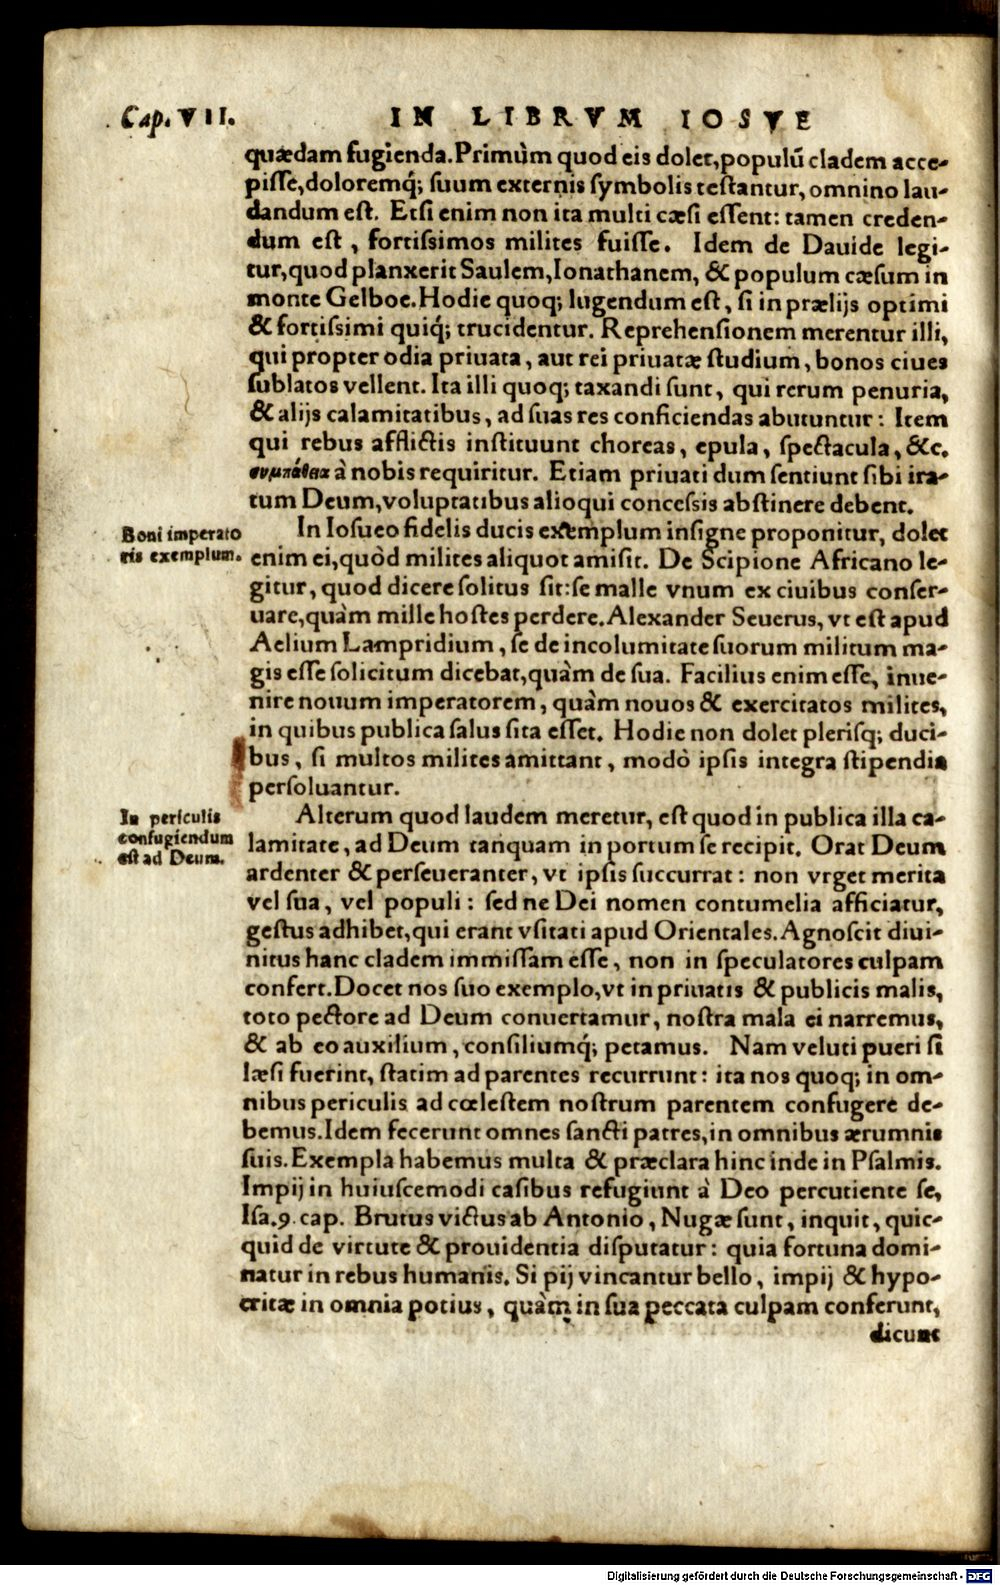 Cap. VII. IN LIBRVM IOSVE
quædam fugienda. Primùm quod eis dolet, populū cladem acce-
pisse, doloremq́; suum externis symbolis testantur, omnino lau-
dandum est. Etsi enim non ita multi cæsi essent: tamen creden-
dum est, fortissimos milites fuisse. Idem de Dauide legi-
tur, quod planxerit Saulem, Ionathanem, & populum cæsum in
monte Gelboe. Hodie quoq; lugendum est, si in prælijs optimi
& fortissimi quiq́; trucidentur. Reprehensionem merentur illi,
qui propter odia priuata, aut rei priuatæ studium, bonos ciues
sublatos vellent. Ita illi quoq; taxandi sunt, qui rerum penuria,
& alijs calamitatibus, ad suas res conficiendas abutuntur: Item
qui rebus afflictis instituunt choreas, epula, spectacula, &c.
συμπάθεια à nobis requiritur. Etiam priuati dum sentiunt sibi ira-
tum Deum, voluptatibus alioqui concessis abstinere debent.
Boni imperato
ris exemplum.
In Iosueo fidelis ducis exemplum insigne proponitur, dolet
enim ei, quòd milites aliquot amisit. De Scipione Africano le-
gitur, quod dicere solitus sit: se malle vnum ex ciuibus conser-
uare, quàm mille hostes perdere. Alexander Seuerus, vt est apud
Aelium Lampridium, se de incolumitate suorum militum ma-
gis esse solicitum dicebat, quàm de sua. Facilius enim esse, inue-
nire nouum imperatorem, quàm nouos & exercitatos milites,
in quibus publica salus sita esset. Hodie non dolet plerisq; duci-
bus, si multos milites amittant, modò ipsis integra stipendia
persoluantur.
In periculis
confugiendum
est ad Deum.
Alterum quod laudem meretur, est quod in publica illa ca-
lamitate, ad Deum tanquam in portum se recipit. Orat Deum
ardenter & perseueranter, vt ipsis succurrat: non vrget merita
vel sua, vel populi: sed ne Dei nomen contumelia afficiatur,
gestus adhibet, qui erant vsitati apud Orientales. Agnoscit diui-
nitus hanc cladem immissam esse, non in speculatores culpam
confert. Docet nos suo exemplo, vt in priuatis & publicis malis,
toto pectore ad Deum conuertamur, nostra mala ei narremus,
& ab eo auxilium, consiliumq́; petamus. Nam veluti pueri si
læsi fuerint, statim ad parentes recurrunt: ita nos quoq; in om-
nibus periculis ad cœlestem nostrum parentem confugere de-
bemus. Idem fecerunt omnes sancti patres, in omnibus ærumnis
suis. Exempla habemus multa & præclara hinc inde in Psalmis.
Impij in huiuscemodi casibus refugiunt à Deo percutiente se,
Isa. 9. cap. Brutus victus ab Antonio, Nugæ sunt, inquit, quic-
quid de virtute & prouidentia disputatur: quia fortuna domi-
natur in rebus humanis. Si pij vincantur bello, impij & hypo-
critæ in omnia potius, quàm in sua peccata culpam conferunt,
dicunt
Digitalisierung gefördert durch die Deutsche Forschungsgemeinschaft - DFG